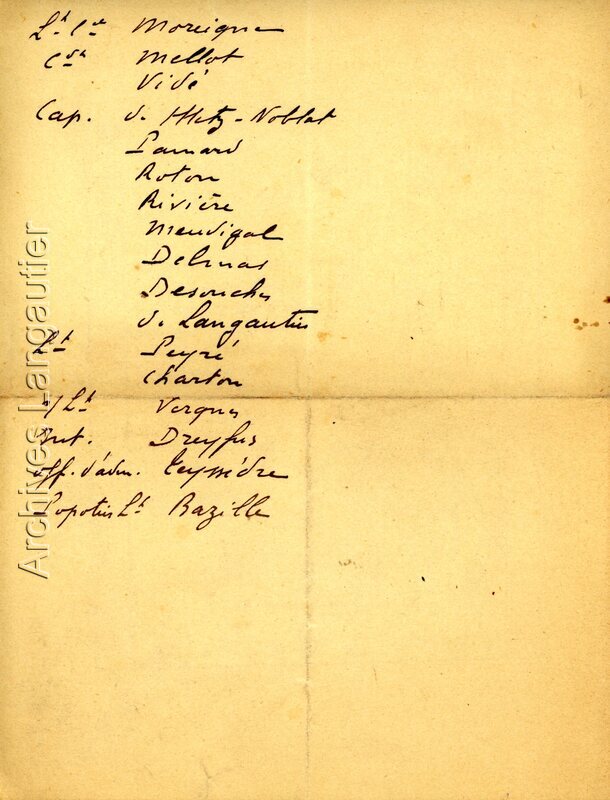 Lt Cel Moreigne
Cdt Mellot
Vidé
Cap. de Metz-Noblat
Pamard
Roton
Rivière
Mendigal
Delmas
Desouches
de Langautier
Lt Peyré
Charton
s/Lt Vergnes
Int. Dreyfus
Off. d'adm. Teyssèdre
Popotier Lt Bazille
Archives Langautier